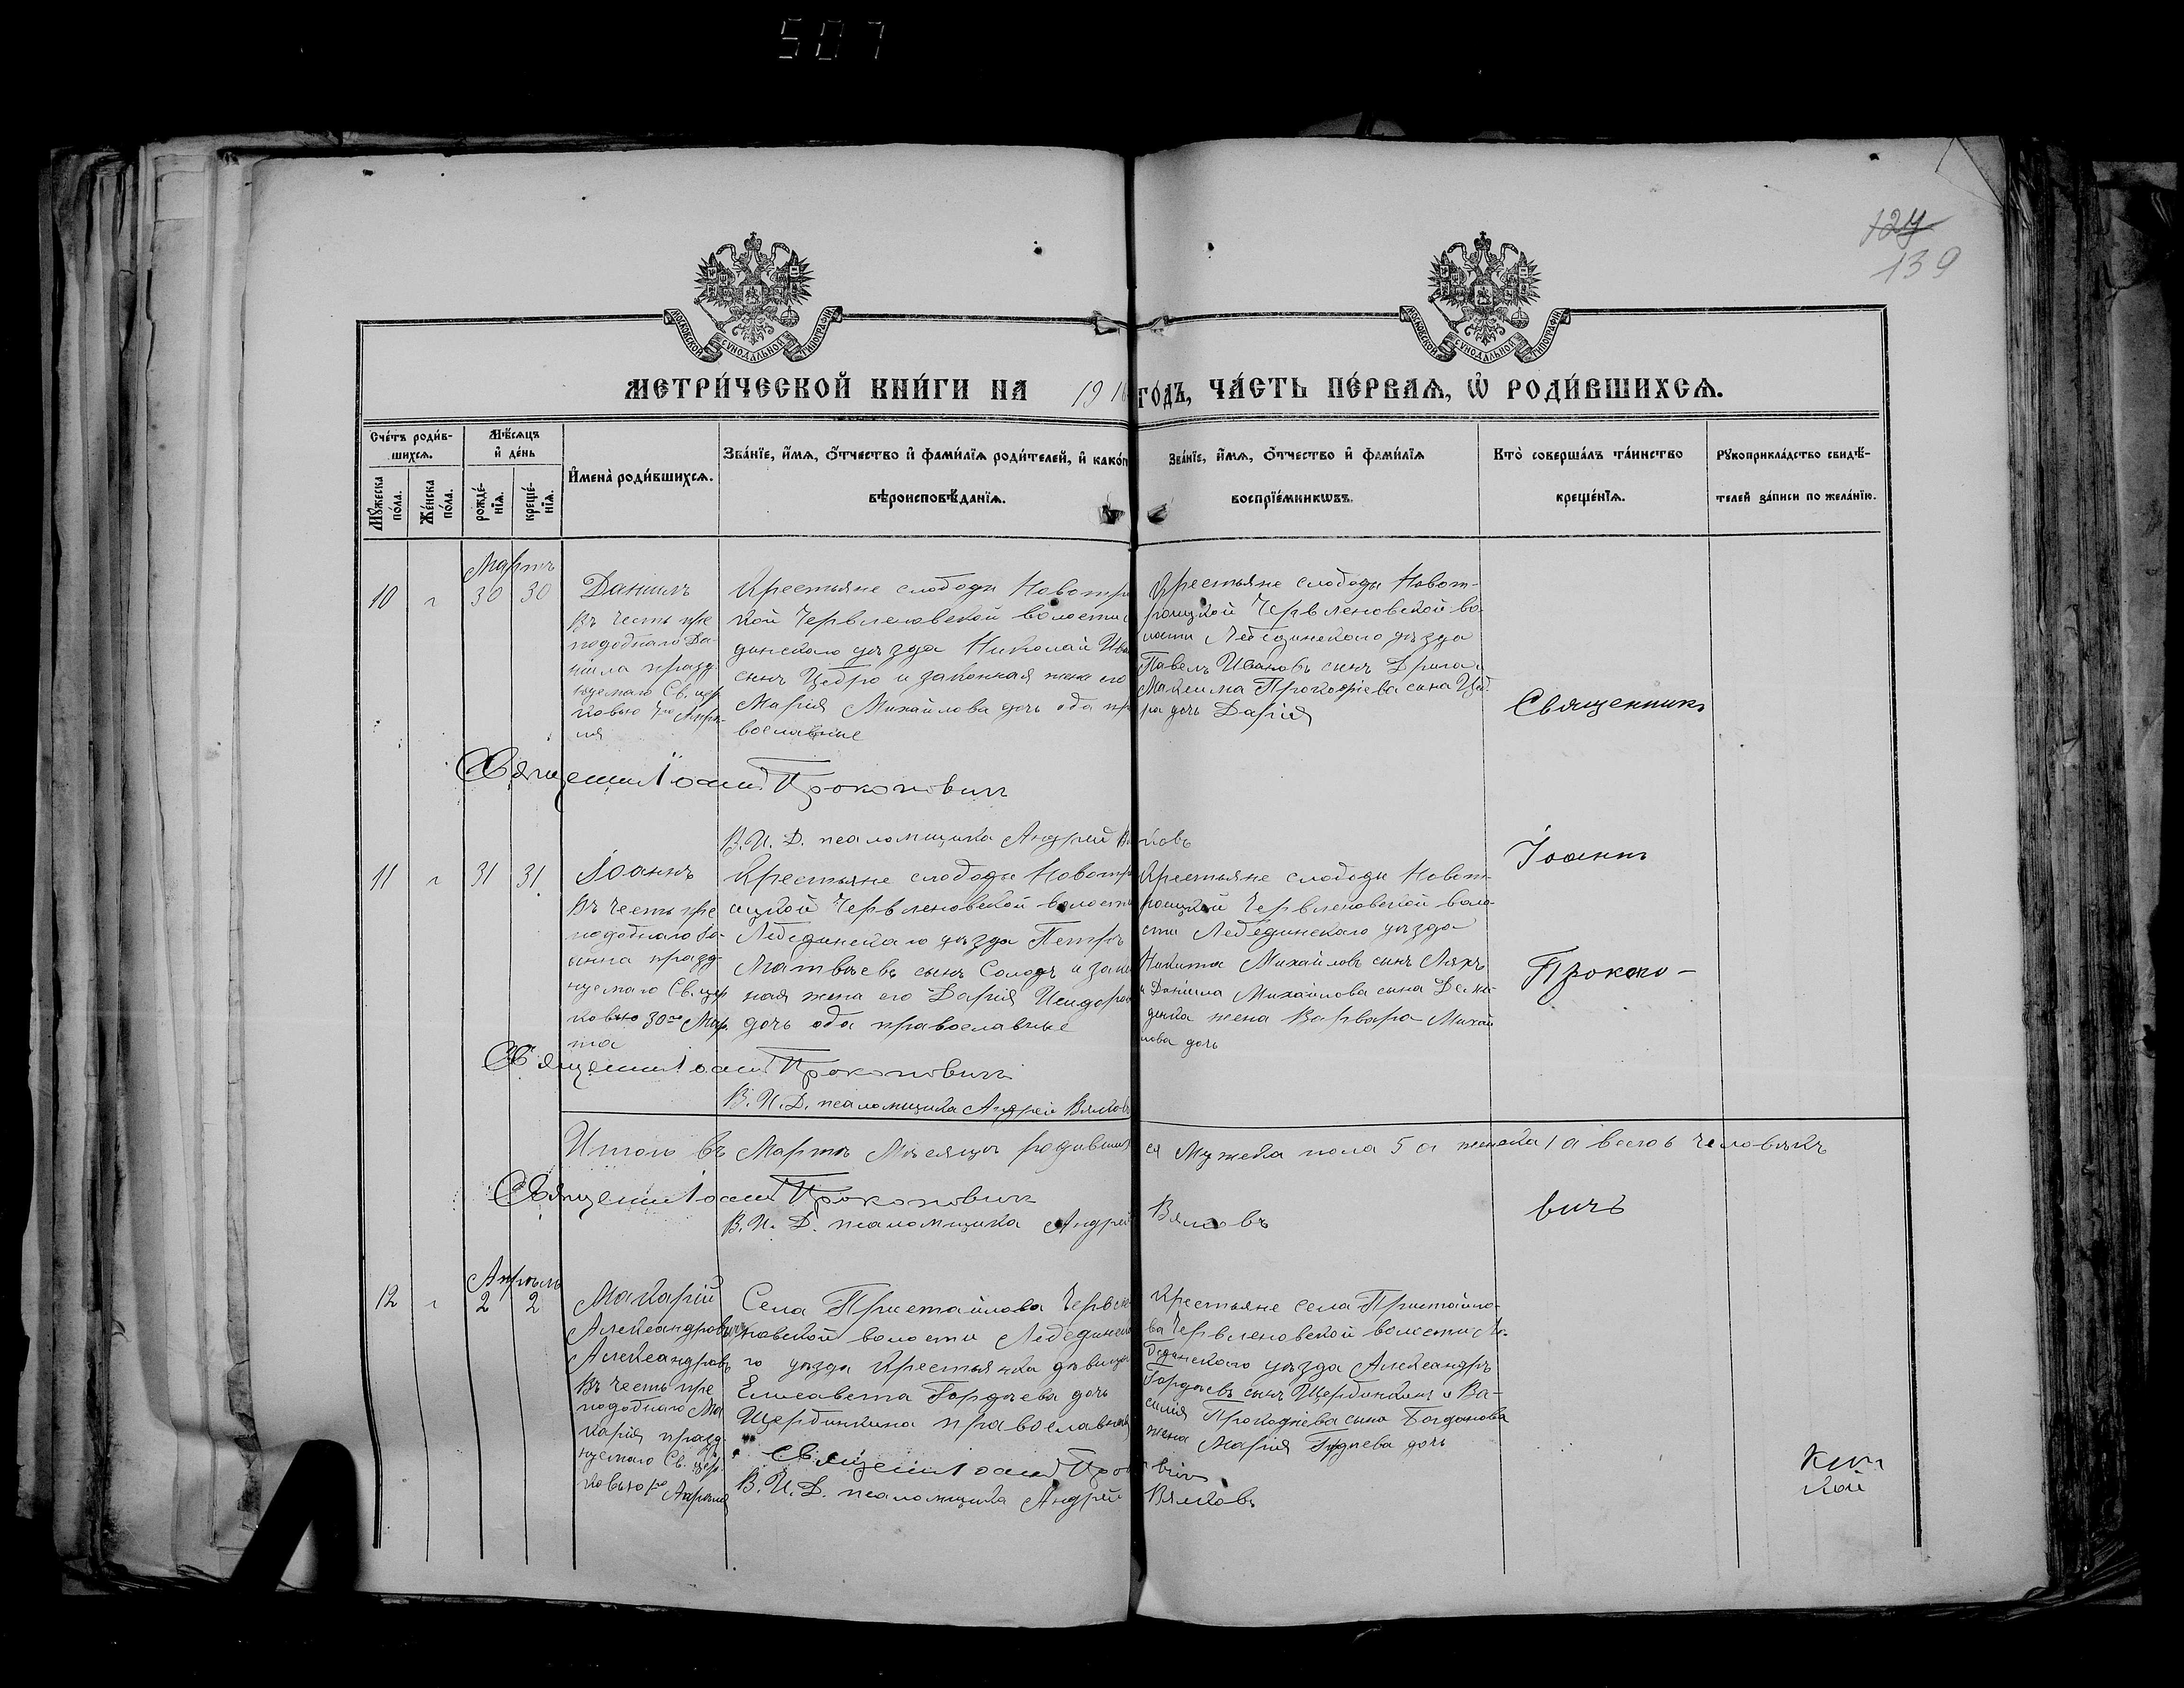 507
124
139
МОСКОВСКОЙ СѴНОДАЛЬНОЙ ТИПОГРАФІИ
МОСКОВСКОЙ СѴНОДАЛЬНОЙ ТИПОГРАФІИ
МЕТРИ́ЧЕСКОЙ КНИ́ГИ НА 191
ГО́ДЪ, ЧА́СТЬ ПЕ́РВАѦ, Ѡ҆ РОДИ́ВШИХСѦ.
Сче́тъ роди́в-
шихсѧ.
Мꙋ́жеска по́ла.
Же́нска по́ла.
Мѣ́сѧцъ и҆ де́нь
рожде́-
нїѧ.
креще́-
нїѧ.
И҆мена̀ роди́вшихсѧ.
Зва́нїе, и҆́мѧ, ѻ҆́тчество и҆ фами́лїѧ роди́телей, и҆ како́г
вѣроисповѣ́данїѧ.
Зва́нїе, и҆́мѧ, ѻ҆́тчество и҆ фами́лїѧ
воспрїе́мникѡвъ.
Кто̀ соверша́лъ та́инство
креще́нїѧ.
Рꙋкоприкла́дство свидѣ́-
телей за́писи по жела́нїю.
Мартъ
10 „ 30 30
Даніилъ
Въ честь пре
подобнаго Да-
ніила празд-
нуемаго Св. цер
ковью Апрѣ-
ля
Крестьяне слободы Новотро
кой Червленовской волости
динскаго уѣзда Николай Ива
сынъ Цебро и законная жена его
Марія Михайлова дочь оба пр
вославные
Крестьяне слободы Новот-
роицкой Червленовской во-
лости Лебединскаго уѣзда
Павелъ Ивановъ сынъ и
Максима Прокофіева сына Цеб-
ра дочь Дарія
Священникъ
Священ Іоаннъ Прокоповичъ
В. И. Д. псаломщика Андрей Вя
ковъ
Іоаннъ
11 „ 31 31
Іоаннъ
Въ честь пре
подобнаго Іо-
анна празд-
нуемаго Св. цер
ковью 30го Мар
та
Крестьяне слободы Новотр
ицкой Червленовской волости
Лебединскаго уѣзда Петръ
Матвѣевъ сынъ Солодъ и закон
ная жена его Дарія Исидоро
дочь оба православные
Крестьяне слободы Новот-
роицкой Червленовской воло-
сти Лебединскаго уѣзда
Никита Михайловъ сынъ Ляхъ
и Даніила Михайлова сына
жена Варвара Михай
лова дочь
Прокопо-
Священ Іоаннъ Прокоповичъ
В. И. Д. псаломщика Андрей Вялковъ
Итого въ Мартѣ Мѣсяцѣ родивших
ся Мужска пола 5 а женска 1 а всего 6 человѣкъ
Священ Іоаннъ Прокоповичъ
В. И. Д. псаломщика Андрей
Вялковъ
вичъ
Апрѣль
12 „ 2 2
Макарій
Александровичъ
Александровъ
Въ честь пре
подобнаго Ма
карія празд
нуемаго Св. цер
ковью 1го Апрѣля
Села Пристайлова Червле
новской волости Лебединска
го уѣзда Крестьянка дѣвица
Елисавета Гордѣева дочь
Щербинкина православная
Крестьяне села Пристайло-
ва Червленовской волости Ле-
бединскаго уѣзда Александръ
Гордѣевъ сынъ Щербинкинъ и Ва-
силія Прокофіева сына Богданова
жена Марія Гордѣева дочь
Священ Іоаннъ Прокоповичъ
В. И. Д. псаломщика Андрей
Вялковъ